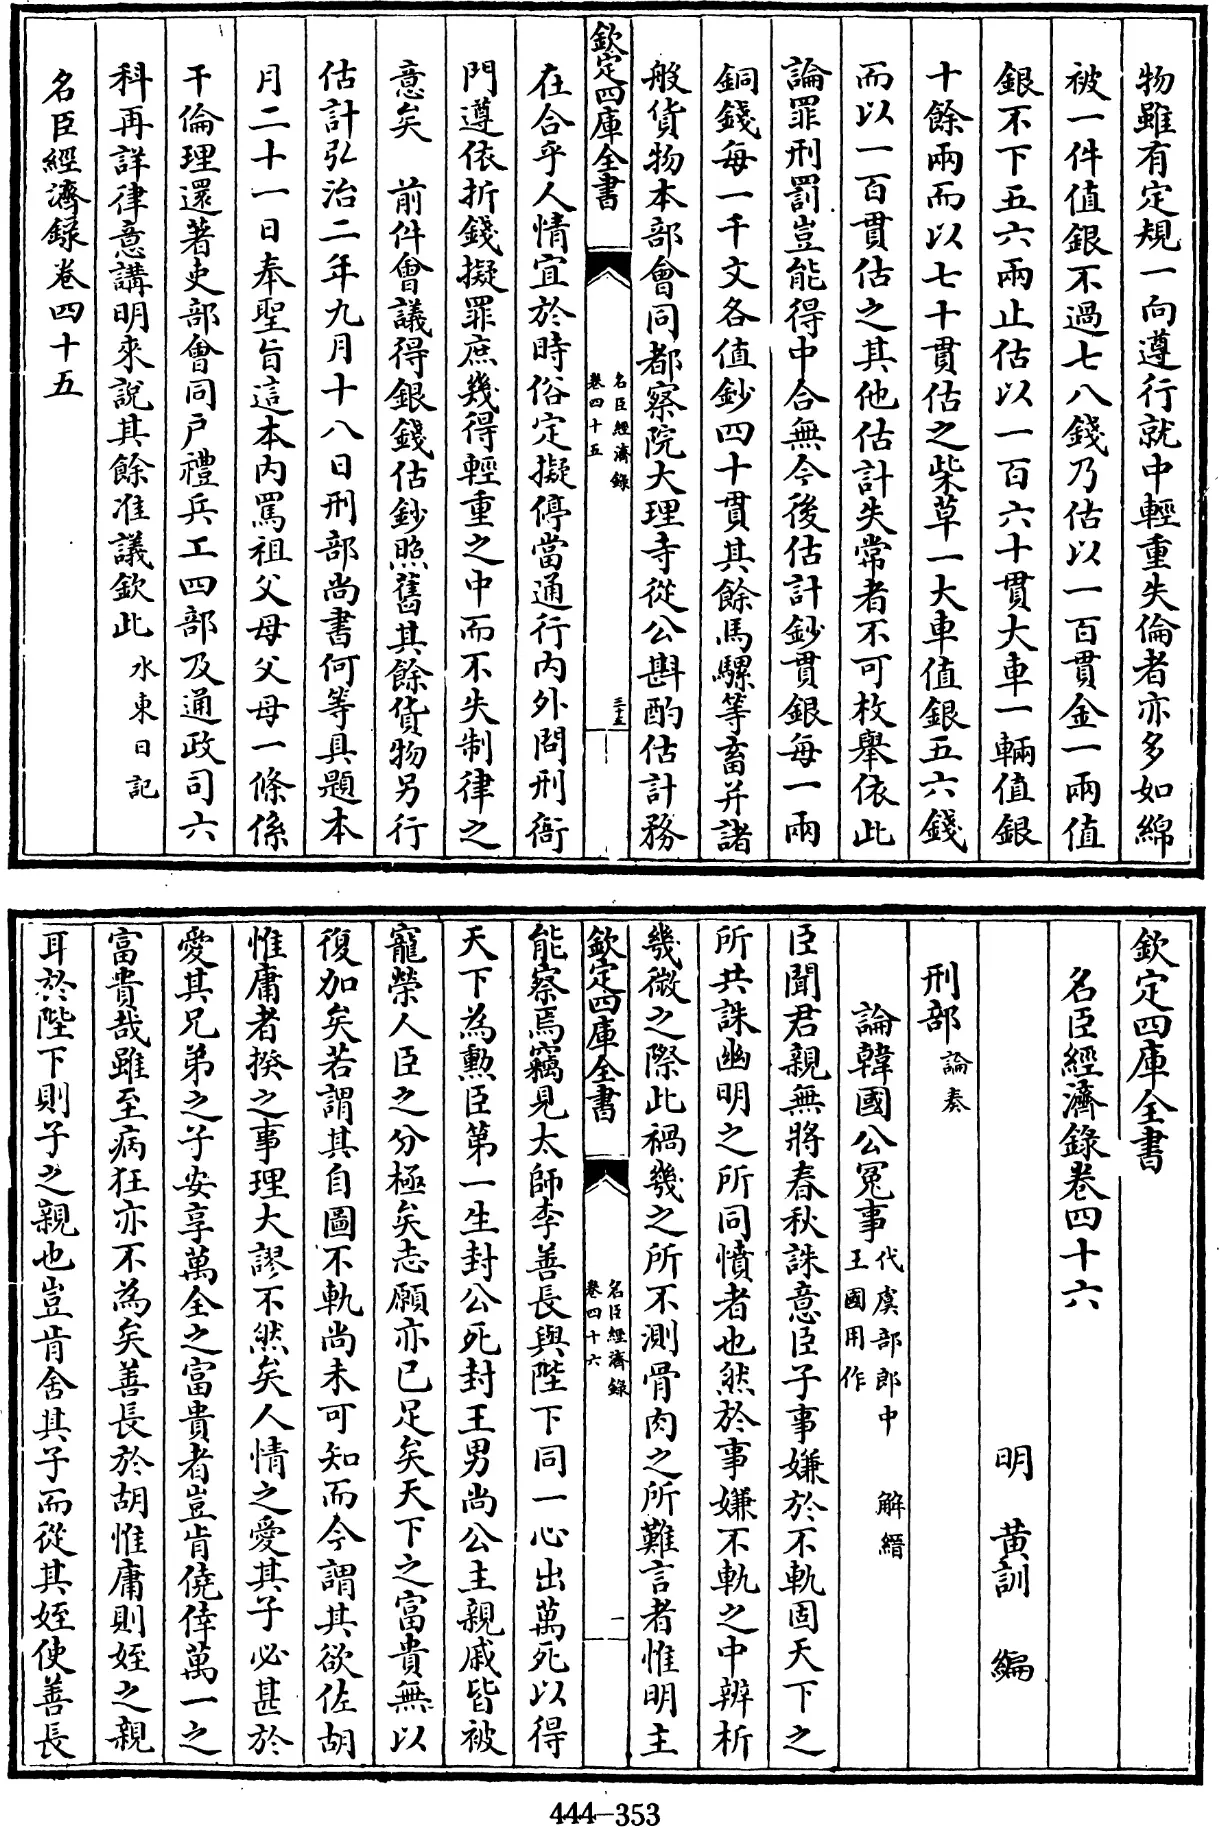 物雖有定規一向遵行就中輕重失倫者亦多如綿
被一件值銀不過七八錢乃估以一百貫金一兩值
銀不下五六兩止估以一百六十貫大車一輛值銀
十餘兩而以七十貫估之柴草一大車值銀五六錢
而以一百貫估之其他估計失常者不可枚舉依此
論罪刑罰豈能得中合無今後估計鈔貫銀每一兩
銅錢每一千文各值鈔四十貫其餘馬騾等畜并諸
般貨物本部會同都察院大理寺從公斟酌估計務
欽定四庫全書
名臣經濟錄
卷四十五
三十五
在合乎人情宜於時俗定擬停當通行內外問刑衙
門遵依折錢擬罪庶幾得輕重之中而不失制律之
意矣 前件會議得銀錢估鈔照舊其餘貨物另行
估計弘治二年九月十八日刑部尚書何等具題本
月二十一日奉聖旨這本內罵祖父母父母一條係
干倫理還著吏部會同戶禮兵工四部及通政司六
科再詳律意講明來說其餘准議欽此 水東日記
名臣經濟録卷四十五
欽定四庫全書
名臣經濟錄卷四十六
明 黄訓 編
刑部 論奏
論韓國公冤事 代虞部郎中 解縉
王國用作
臣聞君親無將春秋誅意臣子事嫌於不軌固天下之
所共誅幽明之所同憤者也然於事嫌不軌之中辨析
幾微之際此禍幾之所不測骨肉之所難言者惟明主
欽定四庫全書
名臣經濟錄
卷四十六
一
能察焉竊見太師李善長與陛下同一心出萬死以得
天下為勲臣第一生封公死封王男尚公主親戚皆被
寵榮人臣之分極矣志願亦已足矣天下之富貴無以
復加矣若謂其自圖不軌尚未可知而今謂其欲佐胡
惟庸者揆之事理大謬不然矣人情之愛其子必甚於
愛其兄弟之子安享萬全之富貴者豈肯僥倖萬一之
富貴哉雖至病狂亦不為矣善長於胡惟庸則姪之親
耳於陛下則子之親也豈肯舍其子而從其姪使善長
444-353